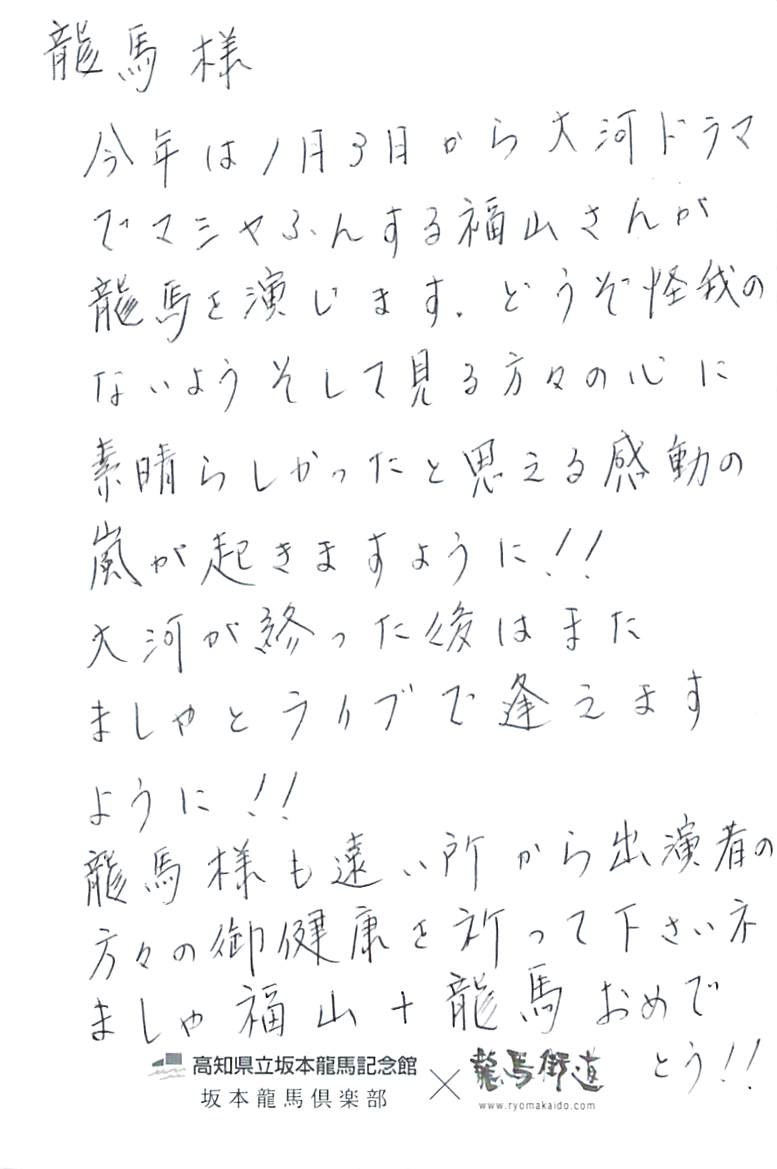 龍馬様
今年は1月3日から大河ドラマ
でマシャふんする福山さんが
龍馬を演じます。どうぞ怪我の
ないようそして見る方々の心に
素晴らしかったと思える感動の
嵐が起きますように!!
大河が終った後はまた
ましゃとライブで逢えます
ように!!
龍馬様も遠い所から出演者の
方々の御健康を祈って下さいネ
ましゃ福山+龍馬おめで
とう!!
高知県立坂本龍馬記念館
坂本龍馬倶楽部
×
龍馬街道
www.ryomakaido.com